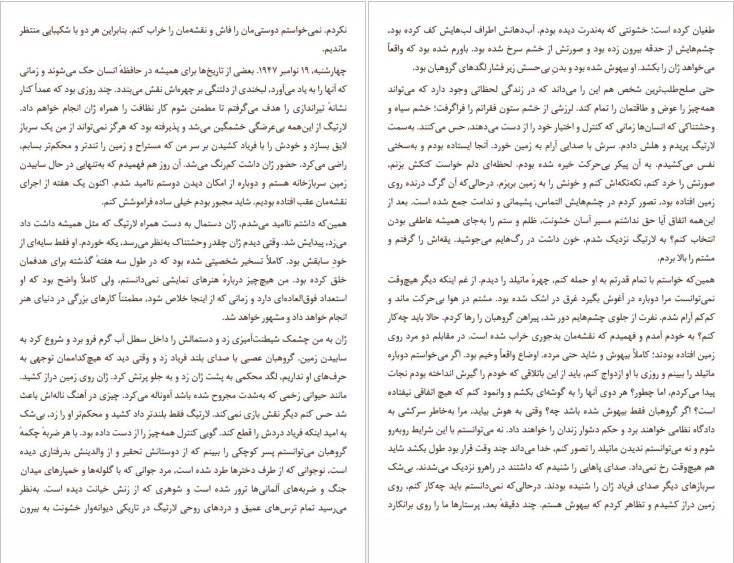 نکردم. نمی‌خواستم دوستی‌مان را فاش و نقشه‌مان را خراب کنم. بنابراین هر دو با شکیبایی منتظر
ماندیم.
چهارشنبه، ۱۹ نوامبر ۱۹۴۷. بعضی از تاریخ‌ها برای همیشه در حافظهٔ انسان حک می‌شوند و زمانی
که آنها را به یاد می‌آورد، لبخندی از دلتنگی بر چهره‌اش نقش می‌بندد. چند روزی بود که عمداً کنار
نشانهٔ تیراندازی را هدف می‌گرفتم تا مطمئن شوم کار نظافت را همراه ژان انجام خواهم داد.
لارتیگ از این‌همه بی‌عرضگی خشمگین می‌شد و پذیرفته بود که هرگز نمی‌تواند از من یک سرباز
لایق بسازد و خودش را با فریاد کشیدن بر سر من که مستراح و زمین را تندتر و محکم‌تر بسابم،
راضی می‌کرد. حضور ژان داشت کم‌رنگ می‌شد. آن روز هم فهمیدم که به‌تنهایی در حال سابیدن
زمین سربازخانه هستم و دوباره از امکان دیدن دوستم ناامید شدم. اکنون یک هفته از اجرای
نقشه‌مان عقب افتاده بودیم. شاید مجبور بودم خیلی ساده فراموشش کنم.
همین‌که داشتم ناامید می‌شدم، ژان دستمال به دست همراه لارتیگ که مثل همیشه داشت داد
می‌زد، پیدایش شد. وقتی دیدم ژان چقدر وحشتناک به‌نظر می‌رسد، یکه خوردم. او فقط سایه‌ای از
خود سابقش بود. کاملاً تسخیر شخصیتی شده بود که در طول سه هفتهٔ گذشته برای هدفمان
خلق کرده بود. من هیچ‌چیز دربارهٔ هنرهای نمایشی نمی‌دانستم، ولی کاملاً واضح بود که او
استعداد فوق‌العاده‌ای دارد و زمانی که از اینجا خلاص شود، مطمئناً کارهای بزرگی در دنیای هنر
انجام خواهد داد و مشهور خواهد شد.
ژان به من چشمک شیطنت‌آمیزی زد و دستمالش را داخل سطل آب گرم فرو برد و شروع کرد به
سابیدن زمین. گروهبان عصبی با صدای بلند فریاد زد و وقتی دید که هیچ‌کداممان توجهی به
حرف‌های او نداریم، لگد محکمی به پشت ژان زد و به جلو پرتش کرد. ژان روی زمین دراز کشید.
مانند حیوانی زخمی که به‌شدت مجروح شده باشد آه‌وناله می‌کرد. چیزی در آهنگ ناله‌اش باعث
شد حس کنم دیگر نقش بازی نمی‌کند. لارتیگ فقط بلندتر داد کشید و محکم‌تر او را زد، بی‌شک
به امید اینکه فریاد دردش را قطع کند. گویی کنترل همه‌چیز را از دست داده بود. با هر ضربهٔ چکمهٔ
گروهبان می‌توانستم پسر کوچکی را ببینم که از دوستانش تحقیر و از والدینش بدرفتاری دیده
است، نوجوانی که از طرف دخترها طرد شده است، مرد جوانی که با گلوله‌ها و خمپارهای میدان
جنگ و ضربه‌های آلمانی‌ها ترور شده است و شوهری که از زنش خیانت دیده است. به‌نظر
می‌رسید تمام ترس‌های عمیق و دردهای روحی لارتیگ در تاریکی دیوانه‌وار خشونت به بیرون
طغیان کرده است؛ خشونتی که به‌ندرت دیده بودم. آب‌دهانش اطراف لب‌هایش کف کرده بود،
چشم‌هایش از حدقه بیرون زده بود و صورتش از خشم سرخ شده بود. باورم شده بود که واقعاً
می‌خواهد ژان را بکشد. او بیهوش شده بود و بدن بی‌حسش زیر فشار لگدهای گروهبان بود.
حتی صلح‌طلب‌ترین شخص هم این را می‌داند که در زندگی لحظاتی وجود دارد که می‌تواند
همه‌چیز را عوض و طاقتمان را تمام کند. لرزشی از خشم ستون فقراتم را فراگرفت؛ خشم سیاه و
وحشتناکی که انسان‌ها زمانی که کنترل و اختیار خود را از دست می‌دهند، حس می‌کنند. به‌سمت
لارتیگ پریدم و هلش دادم. سرش با صدایی آرام به زمین خورد. آنجا ایستاده بودم و به‌سختی
نفس می‌کشیدم. به آن پیکر بی‌حرکت خیره شده بودم. لحظه‌ای دلم خواست کتکش بزنم،
صورتش را خرد کنم، تکه‌تکه‌اش کنم و خونش را به زمین بریزم. درحالی‌که آن گرگ درنده روی
زمین افتاده بود، تصور کردم در چشم‌هایش التماس، پشیمانی و ندامت جمع شده است. بعد از
این‌همه اتفاق آیا حق نداشتم مسیر آسان خشونت، ظلم و ستم را به‌جای همیشه عاطفی بودن
انتخاب کنم؟ به لارتیگ نزدیک شدم، خون داشت در رگ‌هایم می‌جوشید. یقه‌اش را گرفتم و
مشتم را بالا بردم.
همین‌که خواستم با تمام قدرتم به او حمله کنم، چهرهٔ ماتیلد را دیدم. از غم اینکه دیگر هیچ‌وقت
نمی‌توانست مرا دوباره در آغوش بگیرد غرق در اشک شده بود. مشتم در هوا بی‌حرکت ماند و
کم‌کم آرام شدم. نفرت از جلوی چشم‌هایم دور شد، پیراهن گروهبان را رها کردم. حالا باید چه‌کار
کنم؟ به خودم آمدم و فهمیدم که نقشه‌مان بدجوری خراب شده است. در مقابلم دو مرد روی
زمین افتاده بودند؛ کاملاً بیهوش و شاید حتی مرده. اوضاع واقعاً وخیم بود. اگر می‌خواستم دوباره
ماتیلد را ببینم و روزی با او ازدواج کنم، باید از این باتلاقی که خودم را گیرش انداخته بودم نجات
پیدا می‌کردم، اما چطور؟ هر دوی آنها را به گوشه‌ای بکشم و وانمود کنم که هیچ اتفاقی نیفتاده
است؟ اگر گروهبان فقط بیهوش شده باشد چه؟ وقتی به هوش بیاید، مرا به‌خاطر سرکشی به
دادگاه نظامی خواهند برد و حکم دشوار زندان را خواهند داد. نه می‌توانستم با این شرایط روبه‌رو
شوم و نه می‌توانستم ندیدن ماتیلد را تصور کنم، خدا می‌داند چند وقت قرار بود طول بکشد شاید
هم هیچ‌وقت رخ نمی‌داد. صدای پاهایی را شنیدم که داشتند در راهرو نزدیک می‌شدند. بی‌شک
سربازهای دیگر صدای فریاد ژان را شنیده بودند. درحالی‌که نمی‌دانستم باید چه‌کار کنم، روی
زمین دراز کشیدم و تظاهر کردم که بیهوش هستم. چند دقیقه بعد، پرستارها ما را روی برانکارد